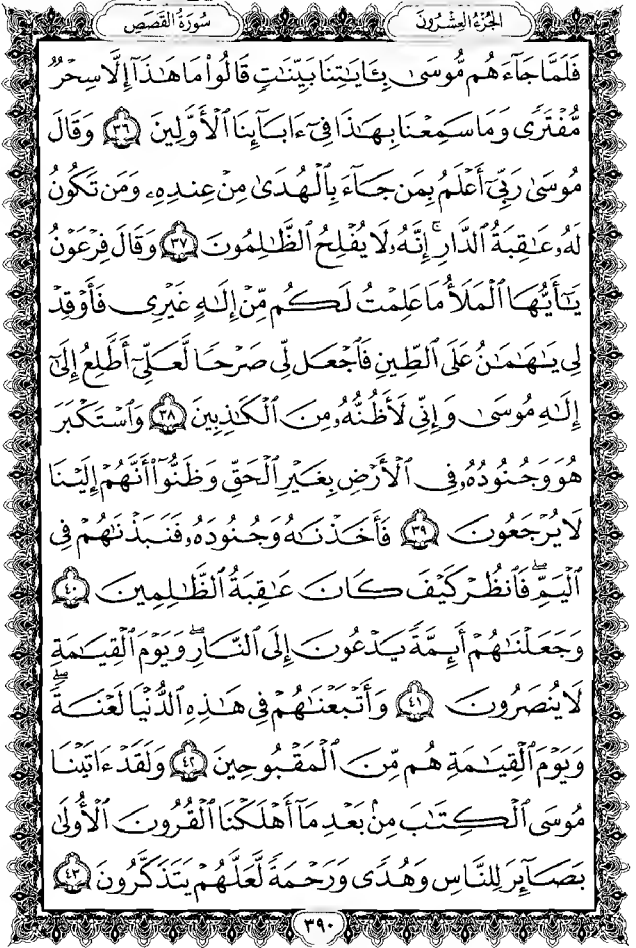 سُورَةُ القَصَصِ
الجُزءُ العِشْرُونَ
فَلَمَّا جَآءَهُم مُّوسَىٰ بِـَٔايَٰتِنَا بَيِّنَٰتٖ قَالُواْ مَا هَٰذَآ إِلَّا سِحۡرٞ
مُّفۡتَرٗى وَمَا سَمِعۡنَا بِهَٰذَا فِيٓ ءَابَآئِنَا ٱلۡأَوَّلِينَ ٣٦ وَقَالَ
مُوسَىٰ رَبِّيٓ أَعۡلَمُ بِمَن جَآءَ بِٱلۡهُدَىٰ مِنۡ عِندِهِۦ وَمَن تَكُونُ
لَهُۥ عَٰقِبَةُ ٱلدَّارِۚ إِنَّهُۥ لَا يُفۡلِحُ ٱلظَّٰلِمُونَ ٣٧ وَقَالَ فِرۡعَوۡنُ
يَٰٓأَيُّهَا ٱلۡمَلَأُ مَا عَلِمۡتُ لَكُم مِّنۡ إِلَٰهٍ غَيۡرِي فَأَوۡقِدۡ
لِي يَٰهَٰمَٰنُ عَلَى ٱلطِّينِ فَٱجۡعَل لِّي صَرۡحٗا لَّعَلِّيٓ أَطَّلِعُ إِلَىٰٓ
إِلَٰهِ مُوسَىٰ وَإِنِّي لَأَظُنُّهُۥ مِنَ ٱلۡكَٰذِبِينَ ٣٨ وَٱسۡتَكۡبَرَ
هُوَ وَجُنُودُهُۥ فِي ٱلۡأَرۡضِ بِغَيۡرِ ٱلۡحَقِّ وَظَنُّوٓاْ أَنَّهُمۡ إِلَيۡنَا
لَا يُرۡجَعُونَ ٣٩ فَأَخَذۡنَٰهُ وَجُنُودَهُۥ فَنَبَذۡنَٰهُمۡ فِي
ٱلۡيَمِّۖ فَٱنظُرۡ كَيۡفَ كَانَ عَٰقِبَةُ ٱلظَّٰلِمِينَ ٤٠
وَجَعَلۡنَٰهُمۡ أَئِمَّةٗ يَدۡعُونَ إِلَى ٱلنَّارِۖ وَيَوۡمَ ٱلۡقِيَٰمَةِ
لَا يُنصَرُونَ ٤١ وَأَتۡبَعۡنَٰهُمۡ فِي هَٰذِهِ ٱلدُّنۡيَا لَعۡنَةٗۖ
وَيَوۡمَ ٱلۡقِيَٰمَةِ هُم مِّنَ ٱلۡمَقۡبُوحِينَ ٤٢ وَلَقَدۡ ءَاتَيۡنَا
مُوسَى ٱلۡكِتَٰبَ مِنۢ بَعۡدِ مَآ أَهۡلَكۡنَا ٱلۡقُرُونَ ٱلۡأُولَىٰ
بَصَآئِرَ لِلنَّاسِ وَهُدٗى وَرَحۡمَةٗ لَّعَلَّهُمۡ يَتَذَكَّرُونَ ٤٣
٣٩٠